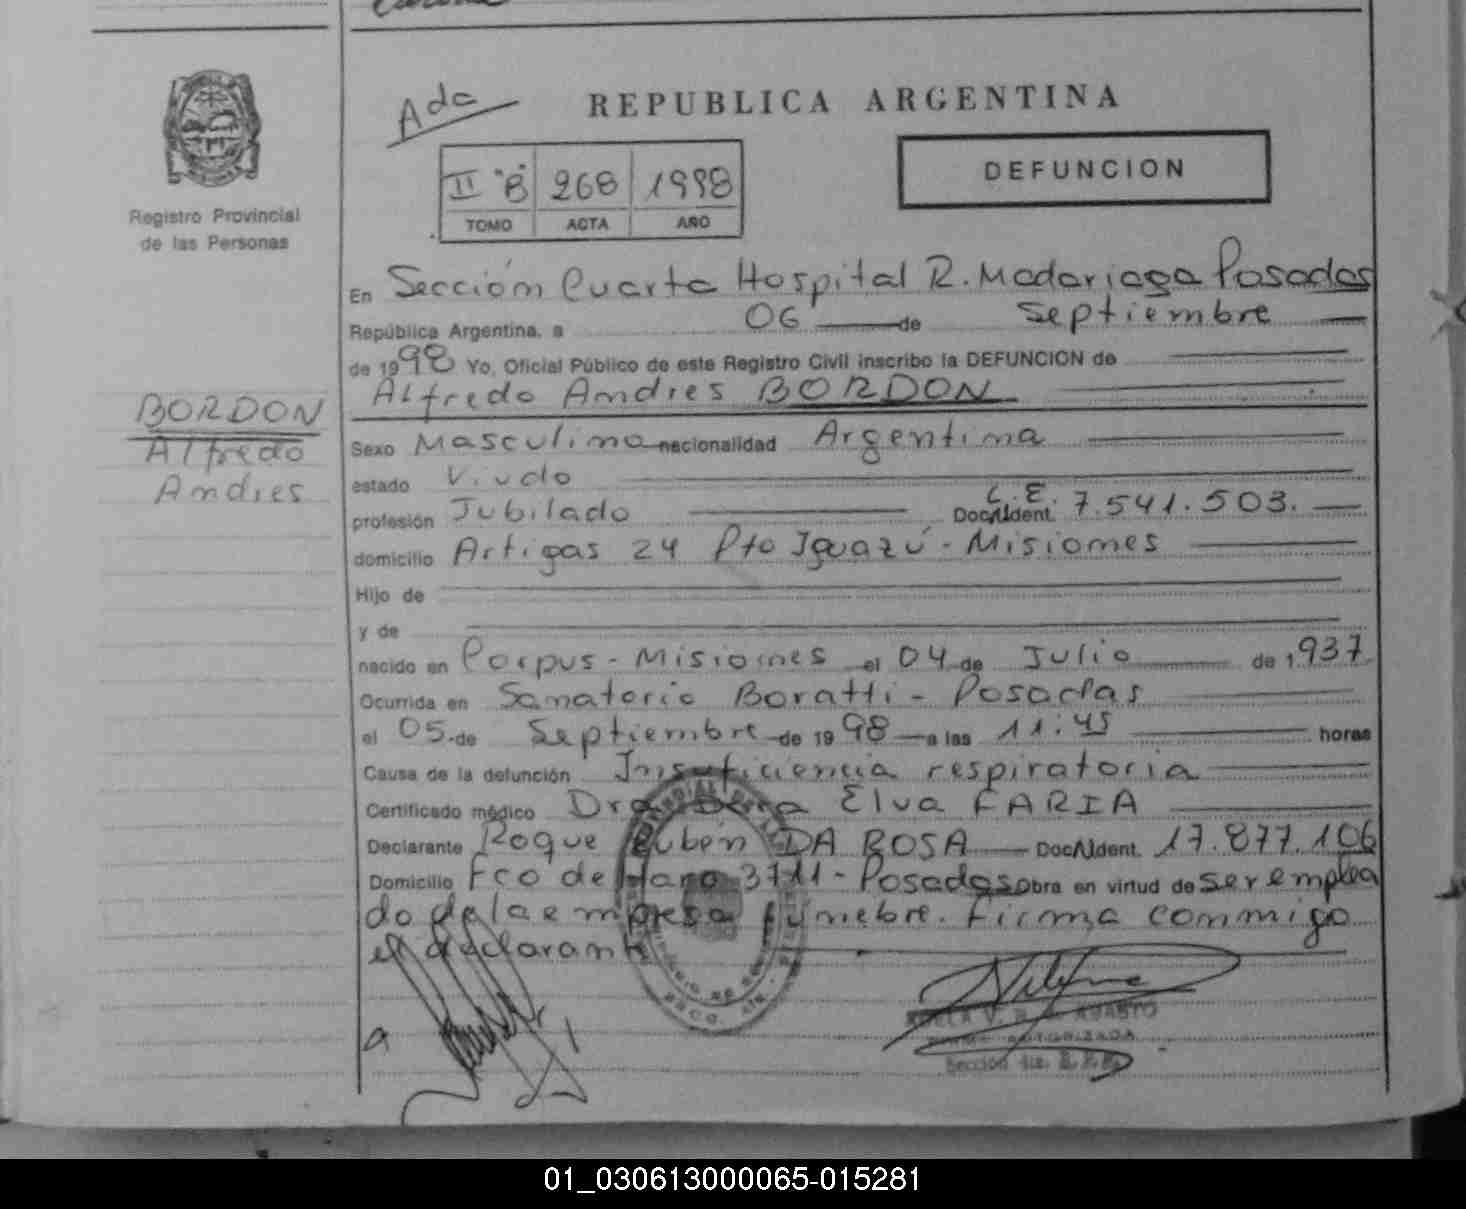 Ada
REPUBLICA ARGENTINA
DEFUNCION
II "B" 268 1998
TOMO ACTA AÑO
Registro Provincial
de las Personas
En Sección Cuarta Hospital R. Madariaga Posadas
República Argentina, a 06 de Septiembre
de 1998 Yo, Oficial Público de este Registro Civil inscribo la DEFUNCION de
Alfredo Andres BORDON
BORDON
Alfredo
Andres
Sexo Masculino nacionalidad Argentina
estado Viudo
profesión Jubilado Doc/Ident. L.E. 7.541.503.
domicilio Artigas 24 Pto Iguazú - Misiones
Hijo de
y de
nacido en Corpus - Misiones el 04 de Julio de 1.937
Ocurrida en Sanatorio Boratti - Posadas
el 05 de Septiembre de 1998 a las 11:45 horas
Causa de la defunción Insuficiencia respiratoria
Certificado médico Dra Elva FARIA
Declarante Roque Rubén DA ROSA Doc/Ident. 17.877.106
Domicilio Fco de Haro 3711 - Posadas obra en virtud de ser emplea
do de la empresa fúnebre. Firma conmigo
el declarante
AUTORIZADA
Sección 4ta.
01_030613000065-015281